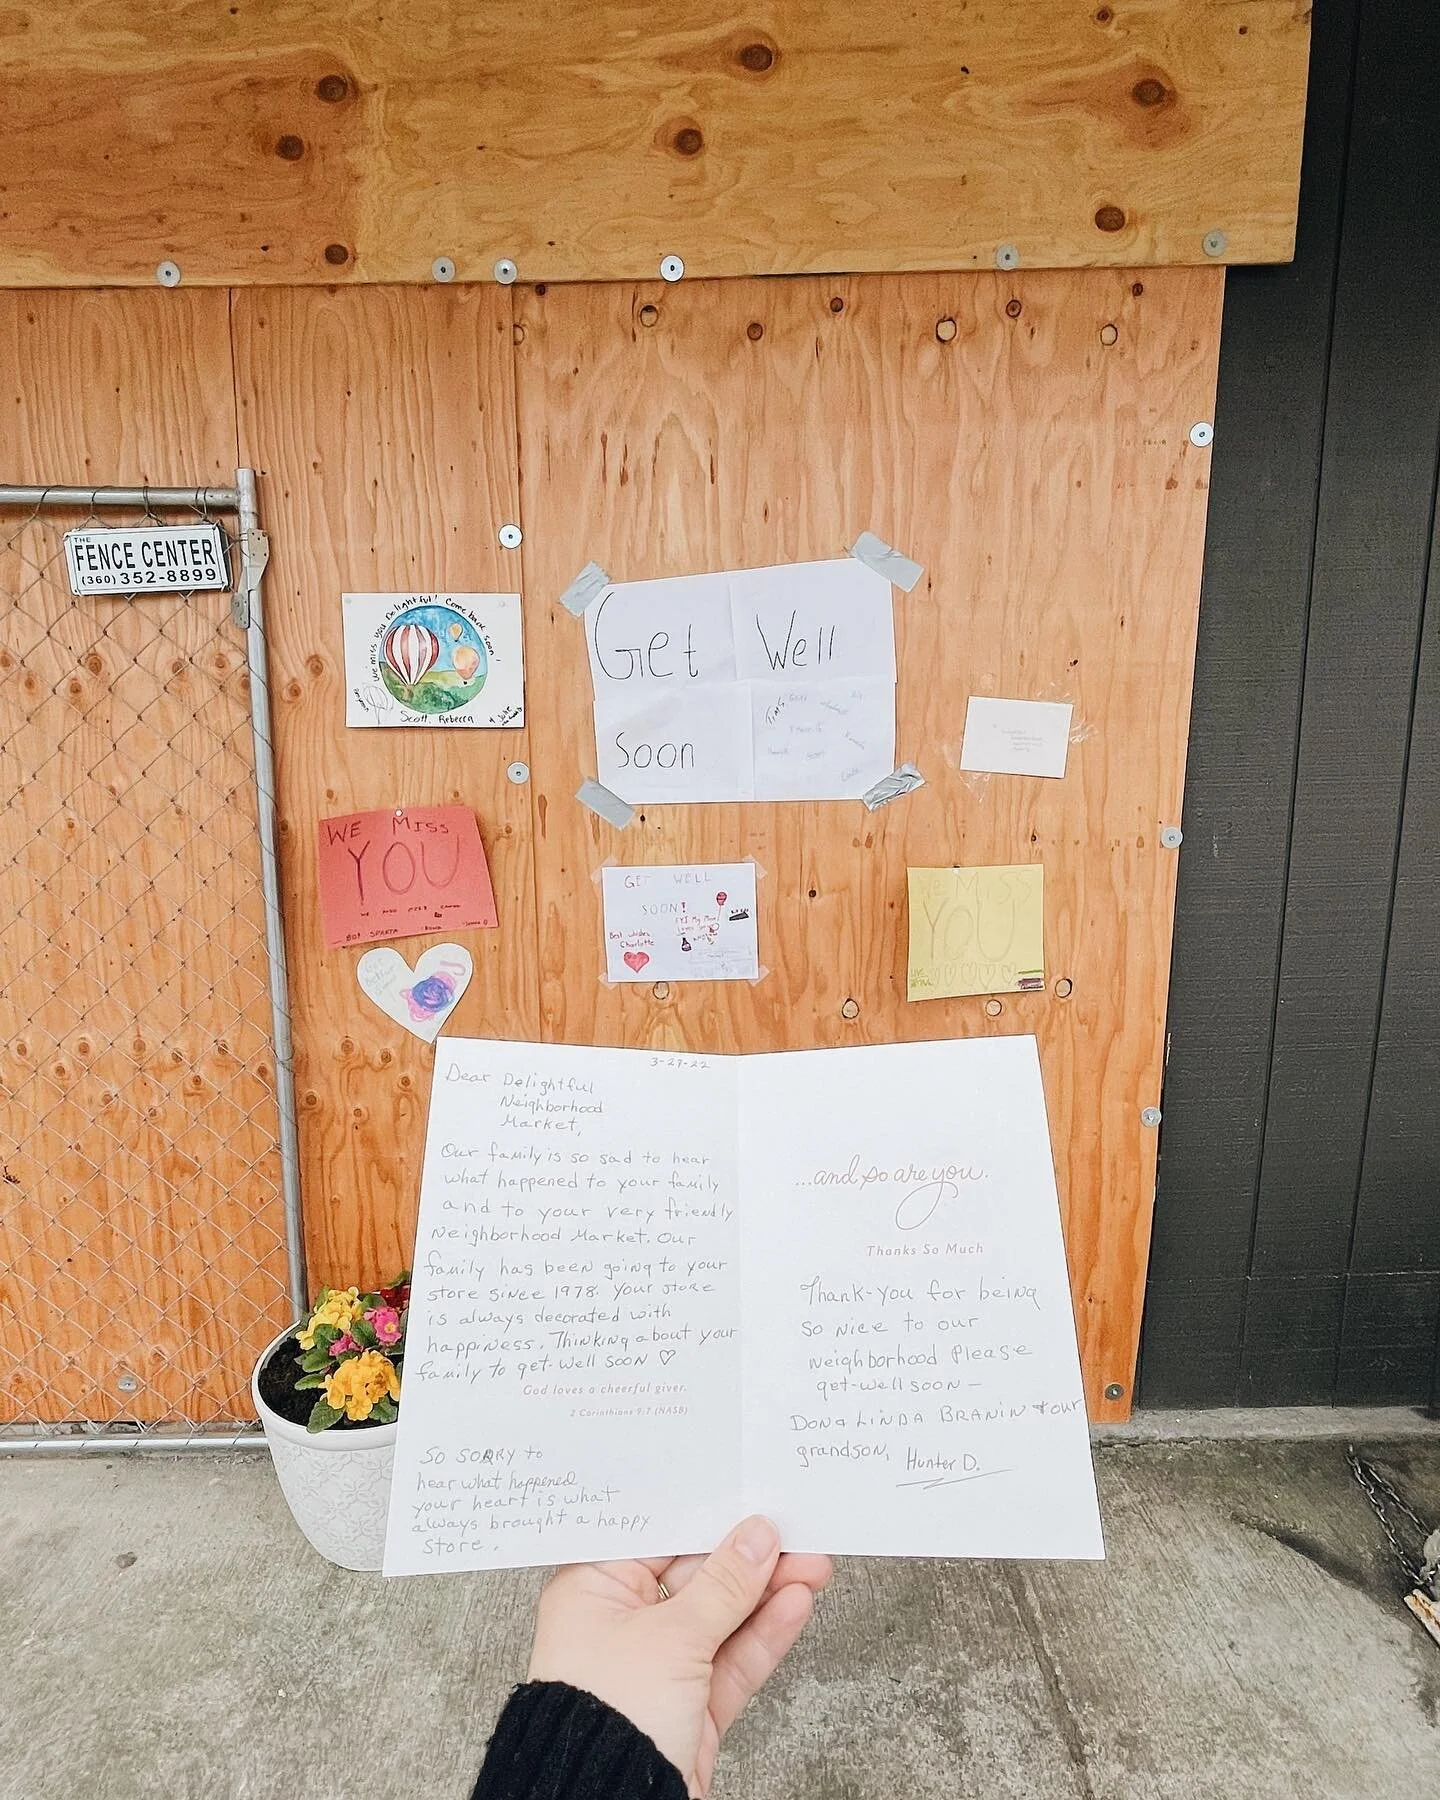 THE
FENCE CENTER
(360) 352-8899
We miss you Delightful! Come back soon!
Scott, Rebecca
& Julie
Get Well
Soon
WE MISS
YOU
GET WELL
SOON!
FYI My Mom
loves you
Best wishes
Charlotte
We MISS
YOU
3-27-22
Dear Delightful
Neighborhood
Market,
Our family is so sad to hear
what happened to your family
and to your very friendly
Neighborhood Market. Our
family has been going to your
store since 1978. Your store
is always decorated with
happiness. Thinking about your
family to get-well soon ♡
God loves a cheerful giver.
2 Corinthians 9:7 (NASB)
So SORRY to
hear what happened
your heart is what
always brought a happy
store.
...and so are you.
Thanks So Much
Thank-you for being
so nice to our
neighborhood Please
get-well soon —
Don & LINDA BRANIN & our
grandson, Hunter D.